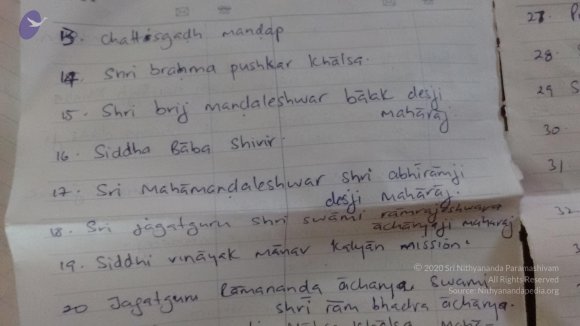 13. Chattisgadh mandap
14. Shri brahma pushkar Khālsa.
15. Shri brij mandaleshwar bālak desji
mahārāj
16. Siddha Bāba Shivir.
17. Sri Mahāmandaleshwar shri abhirāmji
desji mahārāj.
18. Sri Jagatguru shri swāmi rāmrajeshwara
āchāryaji maharaj
19. Siddhi vināyak mānav kalyān mission.
20 Jagatguru Rāmananda āchārya Swami
shri rām bhadra āchārya.
27.
28
29
30
31.
32
© 2020 Sri Nithyananda Paramashivam
All Rights Reserved
Source: Nithyanandapedia.org